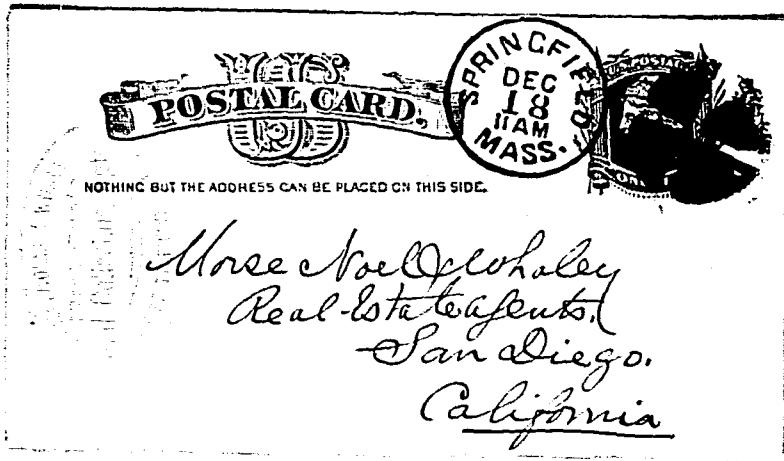 POSTAL CARD.
SPRINGFIELD
DEC
18
11 AM
MASS.
NOTHING BUT THE ADDRESS CAN BE PLACED ON THIS SIDE.
Morse Noel & Whaley
Real Estate agents.
San Diego.
California